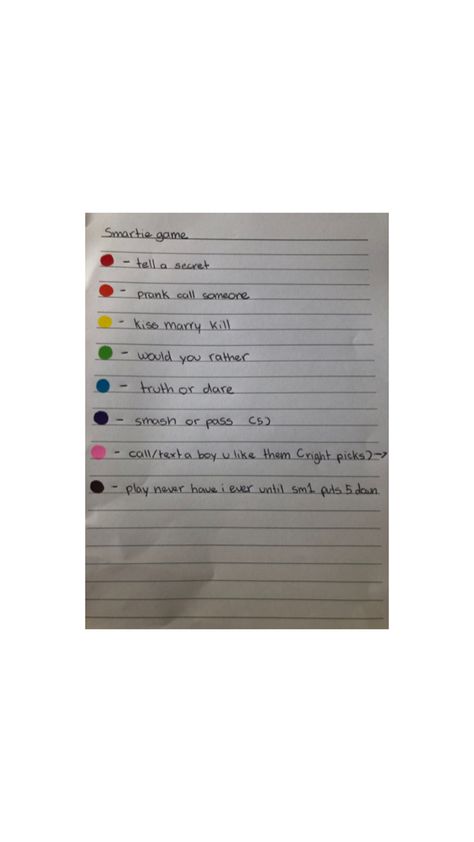 Smartie game
- tell a secret
- prank call someone
- kiss marry kill
- would you rather
- truth or dare
- smash or pass (5)
- call/text a boy u like them (right picks) →
- play never have i ever until sm1 puts 5 down